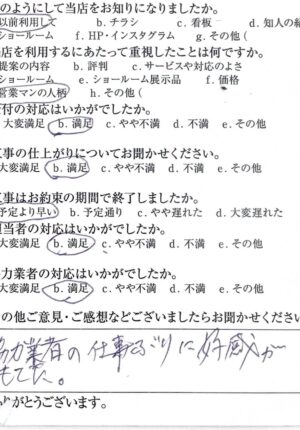 のようにして当店をお知りになりましたか。
以前利用して b. チラシ c. 看板 d. 知人の紹
ショールーム f. HP・インスタグラム g. その他(
店を利用するにあたって重視したことは何ですか。
提案の内容 b. 評判 c. サービスや対応のよさ
ショールーム e. ショールーム展示品 f. 価格
営業マンの人柄 h. その他(
付の対応はいかがでしたか。
大変満足 b. 満足 c. やや不満 d. 不満 e. その他
事の仕上がりについてお聞かせください。
大変満足 b. 満足 c. やや不満 d. 不満 e. その他
事はお約束の期間で終了しましたか。
予定より早い b. 予定通り c. やや遅れた d. 大変遅れた
担当者の対応はいかがでしたか。
大変満足 b. 満足 c. やや不満 d. 不満 e. その他
力業者の対応はいかがでしたか。
大変満足 b. 満足 c. やや不満 d. 不満 e. その他
の他ご意見・ご感想などございましたらお聞かせください
協力業者の仕事ぶりに好感が
もてた。
がとうございます。